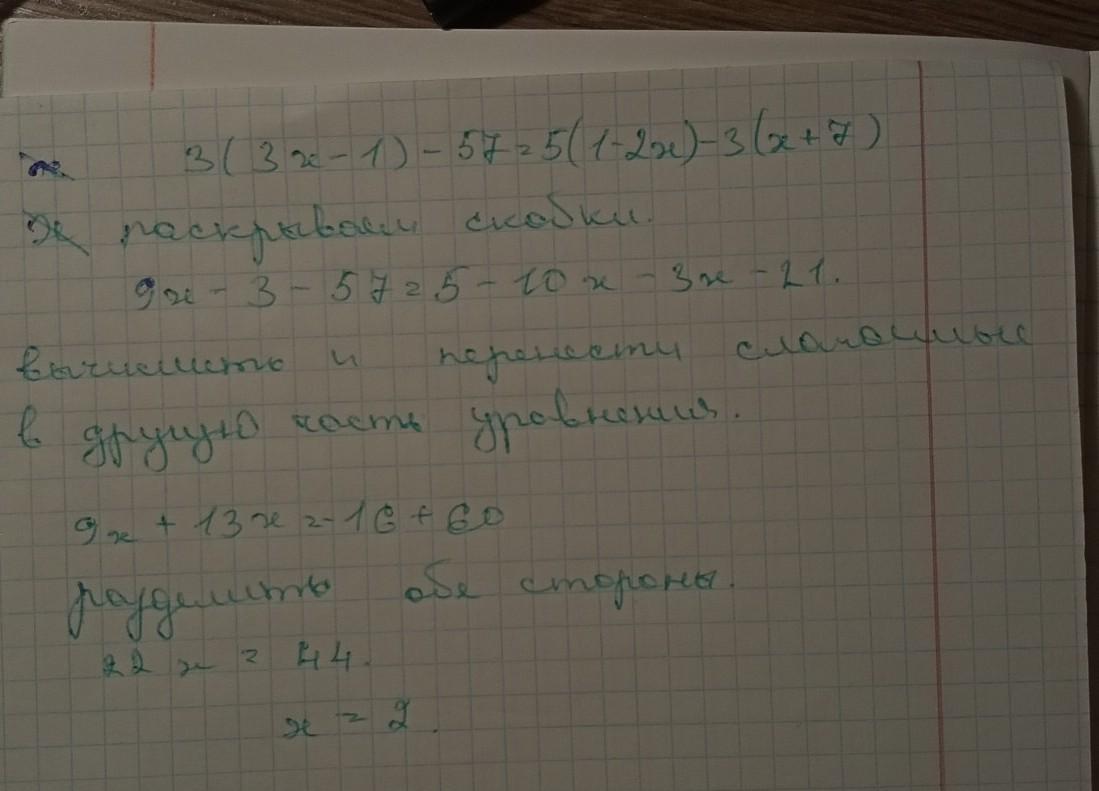 3(3x-1)-57=5(1-2x)-3(x+7)
раскрываем скобки.
9x-3-57=5-10x-3x-21.
вычислить и перенести слагаемые
в другую часть уравнения.
9x+13x=-16+60
разделить обе стороны.
22x=44.
x=2.